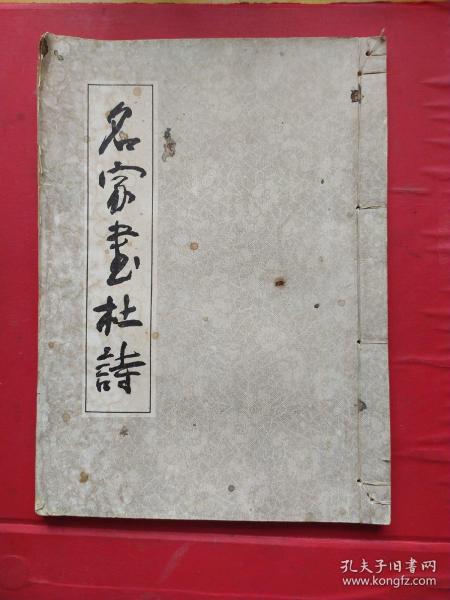 名家畫杜詩
孔夫子旧书网
www.kongfz.com